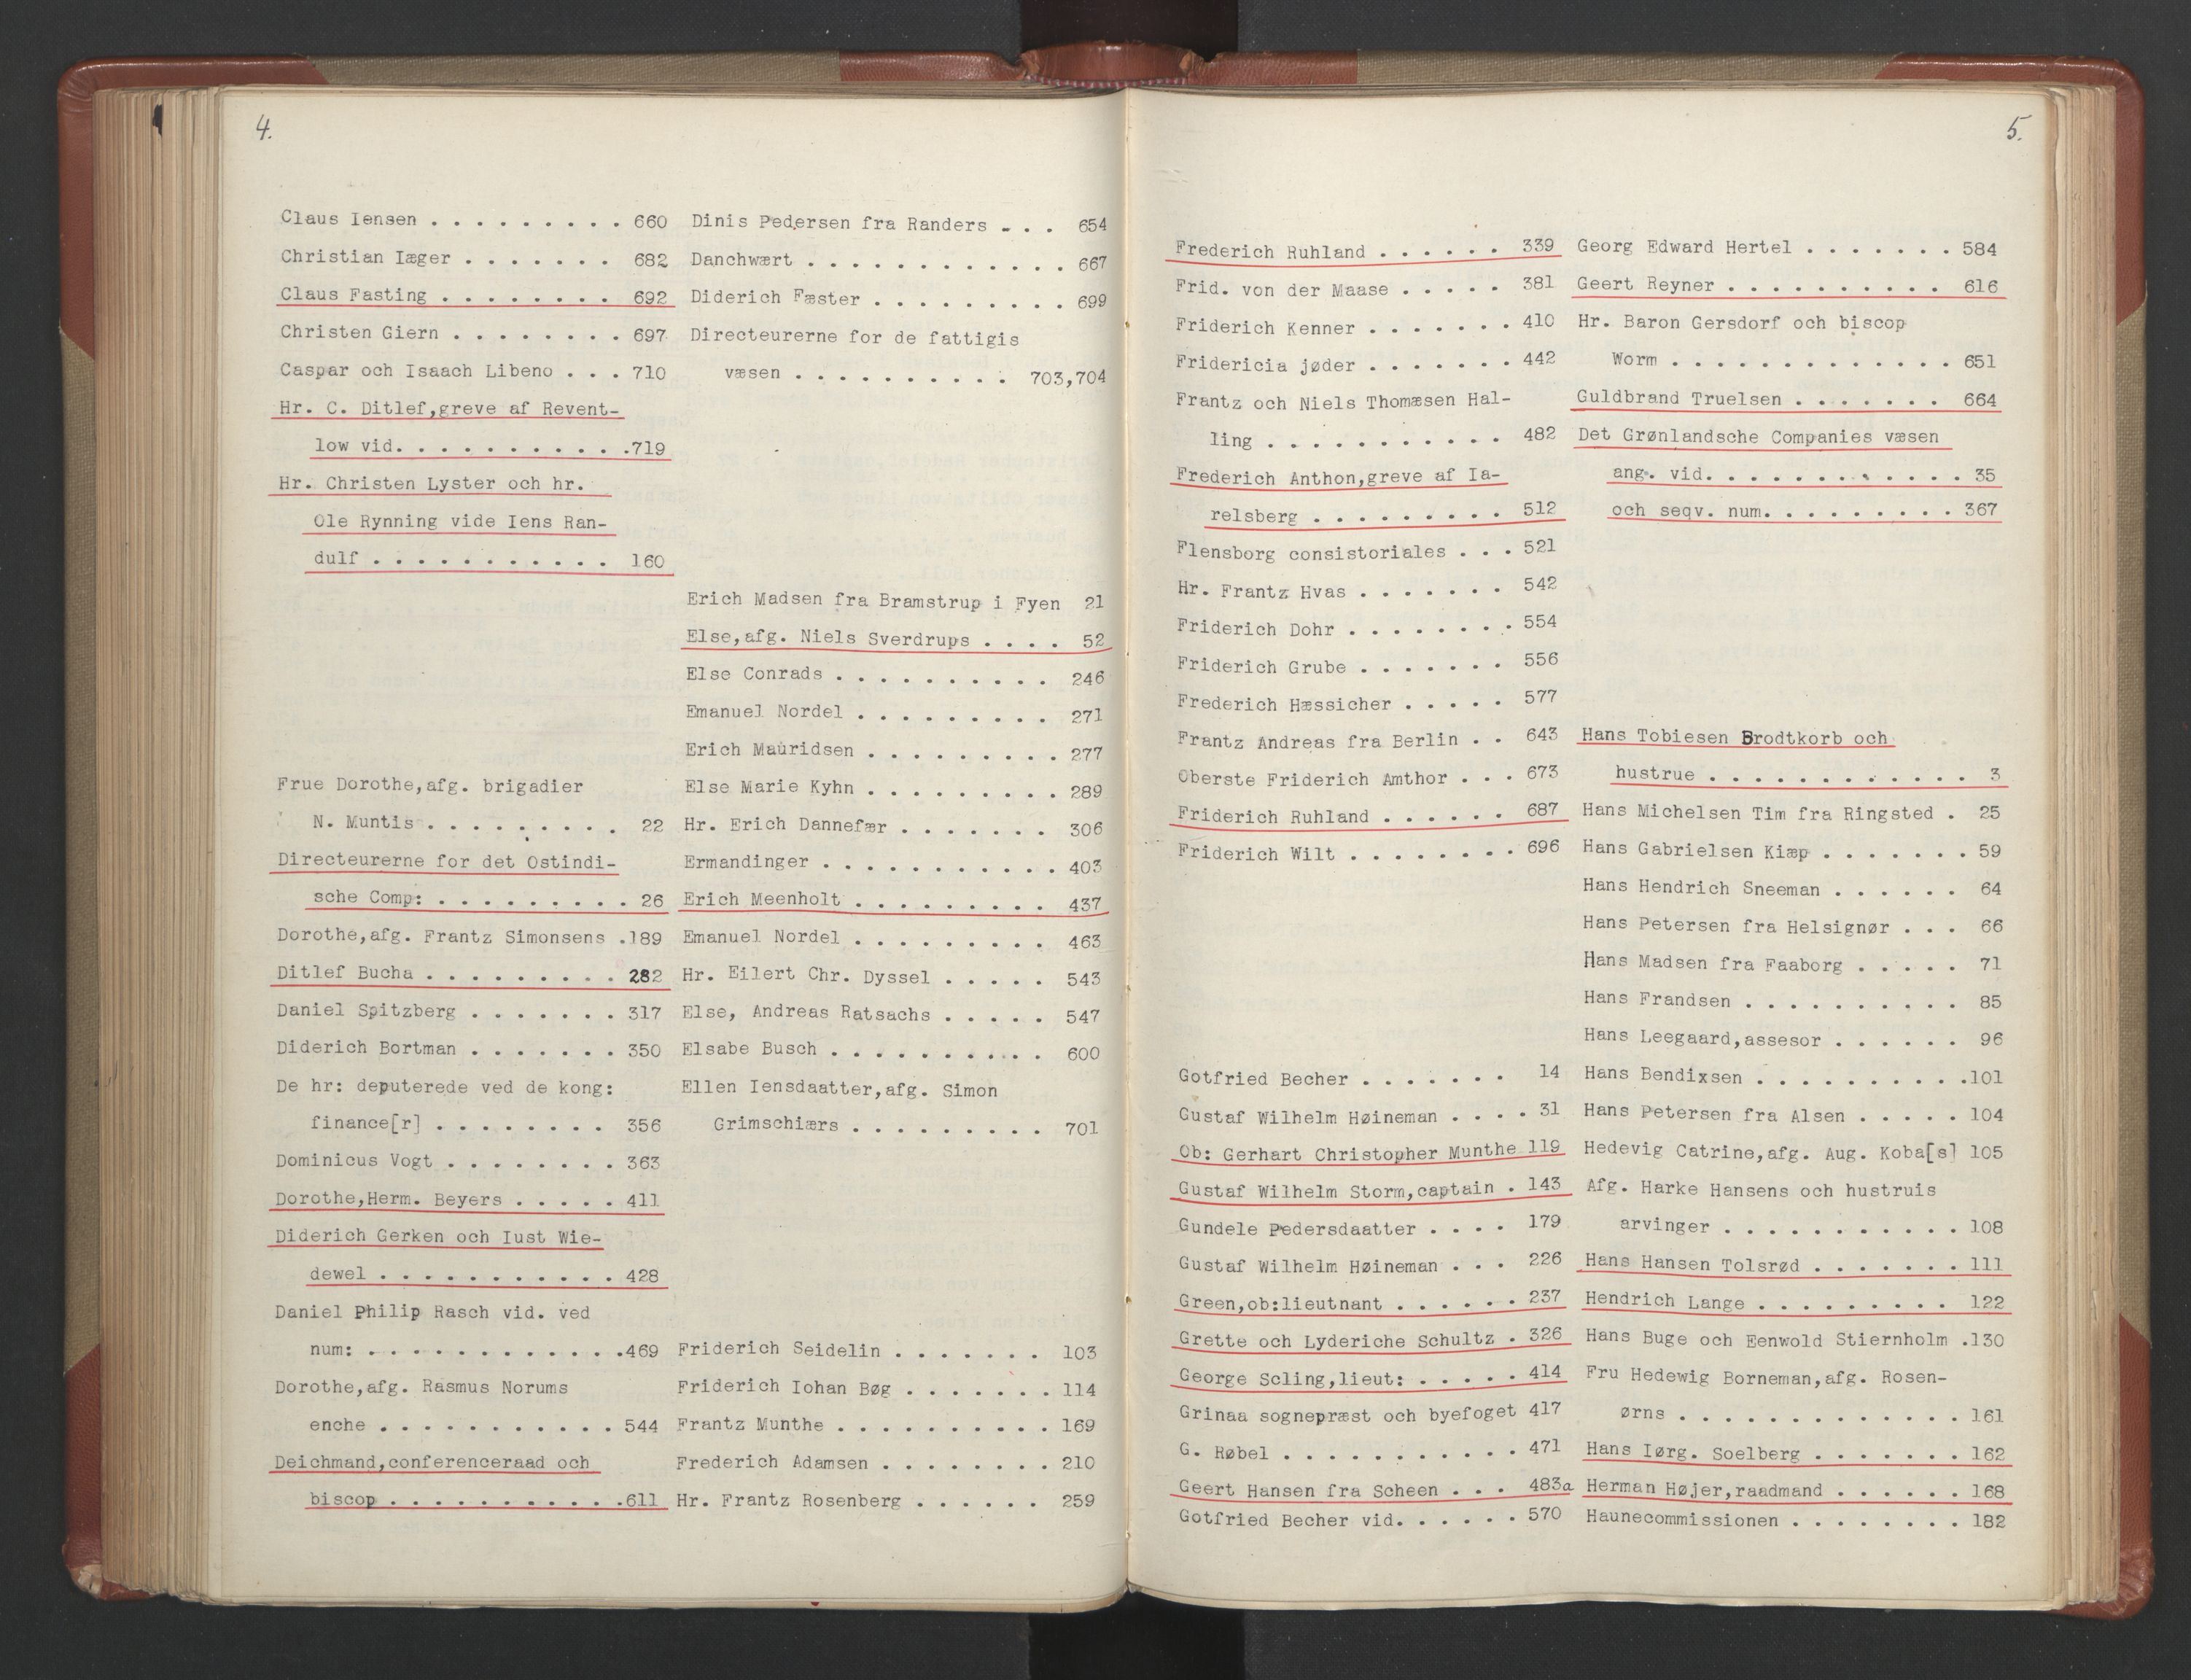 4.
Claus Iensen . . . . . . . . . 660
Christian Iæger . . . . . . . 682
Claus Fasting . . . . . . . . 692
Christen Giern . . . . . . . . 697
Caspar och Isaach Libeno . . . 710
Hr. C. Ditlef,greve af Revent-
low vid. . . . . . . . . . . .719
Hr. Christen Lyster och hr.
Ole Rynning vide Iens Ran-
dulf . . . . . . . . . . . 160
Frue Dorothe,afg. brigadier
N. Muntis . . . . . . . . . 22
Directeurerne for det Ostindi-
sche Comp: . . . . . . . . . 26
Dorothe,afg. Frantz Simonsens .189
Ditlef Bucha . . . . . . . . . 282
Daniel Spitzberg . . . . . . . 317
Diderich Bortman . . . . . . . 350
De hr: deputerede ved de kong:
finance[r] . . . . . . . . 356
Dominicus Vogt . . . . . . . . 363
Dorothe,Herm. Beyers . . . . . 411
Diderich Gerken och Iust Wie-
dewel . . . . . . . . . . . 428
Daniel Philip Rasch vid. ved
num: . . . . . . . . . . . .469
Dorothe,afg. Rasmus Norums
enche . . . . . . . . . . . 544
Deichmand,conferenceraad och
biscop . . . . . . . . . . .611
Dinis Pedersen fra Randers . . . 654
Danchwært . . . . . . . . . . . . 667
Diderich Fæster . . . . . . . . . 699
Directeurerne for de fattigis
væsen . . . . . . . . . . 703,704
Erich Madsen fra Bramstrup i Fyen 21
Else,afg. Niels Sverdrups . . . . 52
Else Conrads . . . . . . . . . . 246
Emanuel Nordel . . . . . . . . . 271
Erich Mauridsen . . . . . . . . . 277
Else Marie Kyhn . . . . . . . . . 289
Hr. Erich Dannefær . . . . . . . 306
Ermandinger . . . . . . . . . . . 403
Erich Meenholt . . . . . . . . . 437
Emanuel Nordel . . . . . . . . . 463
Hr. Eilert Chr. Dyssel . . . . . 543
Else, Andreas Ratsachs . . . . . 547
Elsabe Busch . . . . . . . . . . 600
Ellen Iensdaatter,afg. Simon
Grimschiærs . . . . . . . . . 701
Friderich Seidelin . . . . . . . 103
Friderich Iohan Bøg . . . . . . . 114
Frantz Munthe . . . . . . . . . . 169
Frederich Adamsen . . . . . . . . 210
Hr. Frantz Rosenberg . . . . . . 259
5.
Frederich Ruhland . . . . . . 339
Frid. von der Maase . . . . . 381
Friderich Kenner . . . . . . . 410
Fridericia jøder . . . . . . . 442
Frantz och Niels Thomæsen Hal-
ling . . . . . . . . . . . 482
Frederich Anthon,greve af Ia-
relsberg . . . . . . . . . 512
Flensborg consistoriales . . . 521
Hr. Frantz Hvas . . . . . . . 542
Friderich Dohr . . . . . . . . 554
Friderich Grube . . . . . . . 556
Frederich Hæssicher . . . . . 577
Frantz Andreas fra Berlin . . 643
Oberste Friderich Amthor . . . 673
Friderich Ruhland . . . . . . 687
Friderich Wilt . . . . . . . . 696
Gotfried Becher . . . . . . . 14
Gustaf Wilhelm Høineman . . . . 31
Ob: Gerhart Christopher Munthe 119
Gustaf Wilhelm Storm,captain . 143
Gundele Pedersdaatter . . . . 179
Gustaf Wilhelm Høineman . . . 226
Green,ob:lieutnant . . . . . . 237
Grette och Lyderiche Schultz . 326
George Scling,lieut: . . . . . 414
Grinaa sognepræst och byefoget 417
G. Røbel . . . . . . . . . . . 471
Geert Hansen fra Scheen . . . 483a
Gotfried Becher vid. . . . . . 570
Georg Edward Hertel . . . . . . . 584
Geert Reyner . . . . . . . . . . 616
Hr. Baron Gersdorf och biscop
Worm . . . . . . . . . . . . . 651
Guldbrand Truelsen . . . . . . . 664
Det Grønlandsche Companies væsen
ang. vid. . . . . . . . . . . . 35
och seqv. num. . . . . . . . . 367
Hans Tobiesen Brodtkorb och
hustrue . . . . . . . . . . . . 3
Hans Michelsen Tim fra Ringsted . 25
Hans Gabrielsen Kiæp . . . . . . . 59
Hans Hendrich Sneeman . . . . . . 64
Hans Petersen fra Helsignør . . . 66
Hans Madsen fra Faaborg . . . . . 71
Hans Frandsen . . . . . . . . . . 85
Hans Leegaard,assesor . . . . . . 96
Hans Bendixsen . . . . . . . . . .101
Hans Petersen fra Alsen . . . . . 104
Hedevig Catrine,afg. Aug. Koba[s] 105
Afg. Harke Hansens och hustruis
arvinger . . . . . . . . . . . 108
Hans Hansen Tolsrød . . . . . . . 111
Hendrich Lange . . . . . . . . . 122
Hans Buge och Eenwold Stiernholm .130
Fru Hedewig Borneman,afg. Rosen-
ørns . . . . . . . . . . . . . 161
Hans Iørg. Soelberg . . . . . . . 162
Herman Højer,raadmand . . . . . . 168
Haunecommissionen . . . . . . . . 182